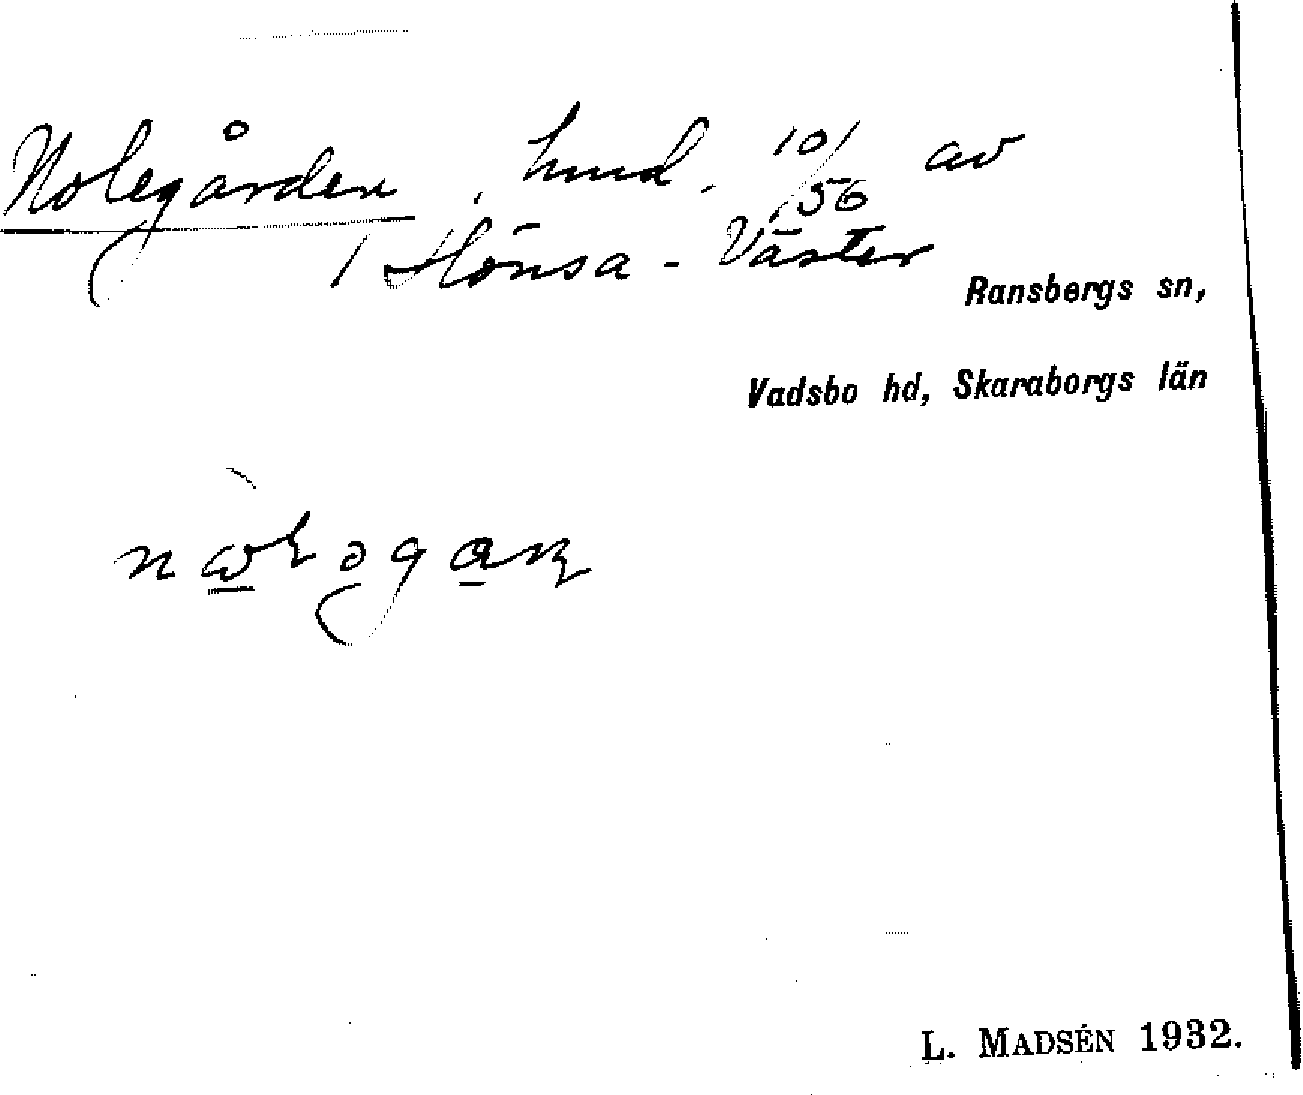 Nolegården, hmd. 10/56 av
1 Hönsa-Väster
Ransbergs sn,
Vadsbo hd, Skaraborgs län
L. MADSÉN 1932.